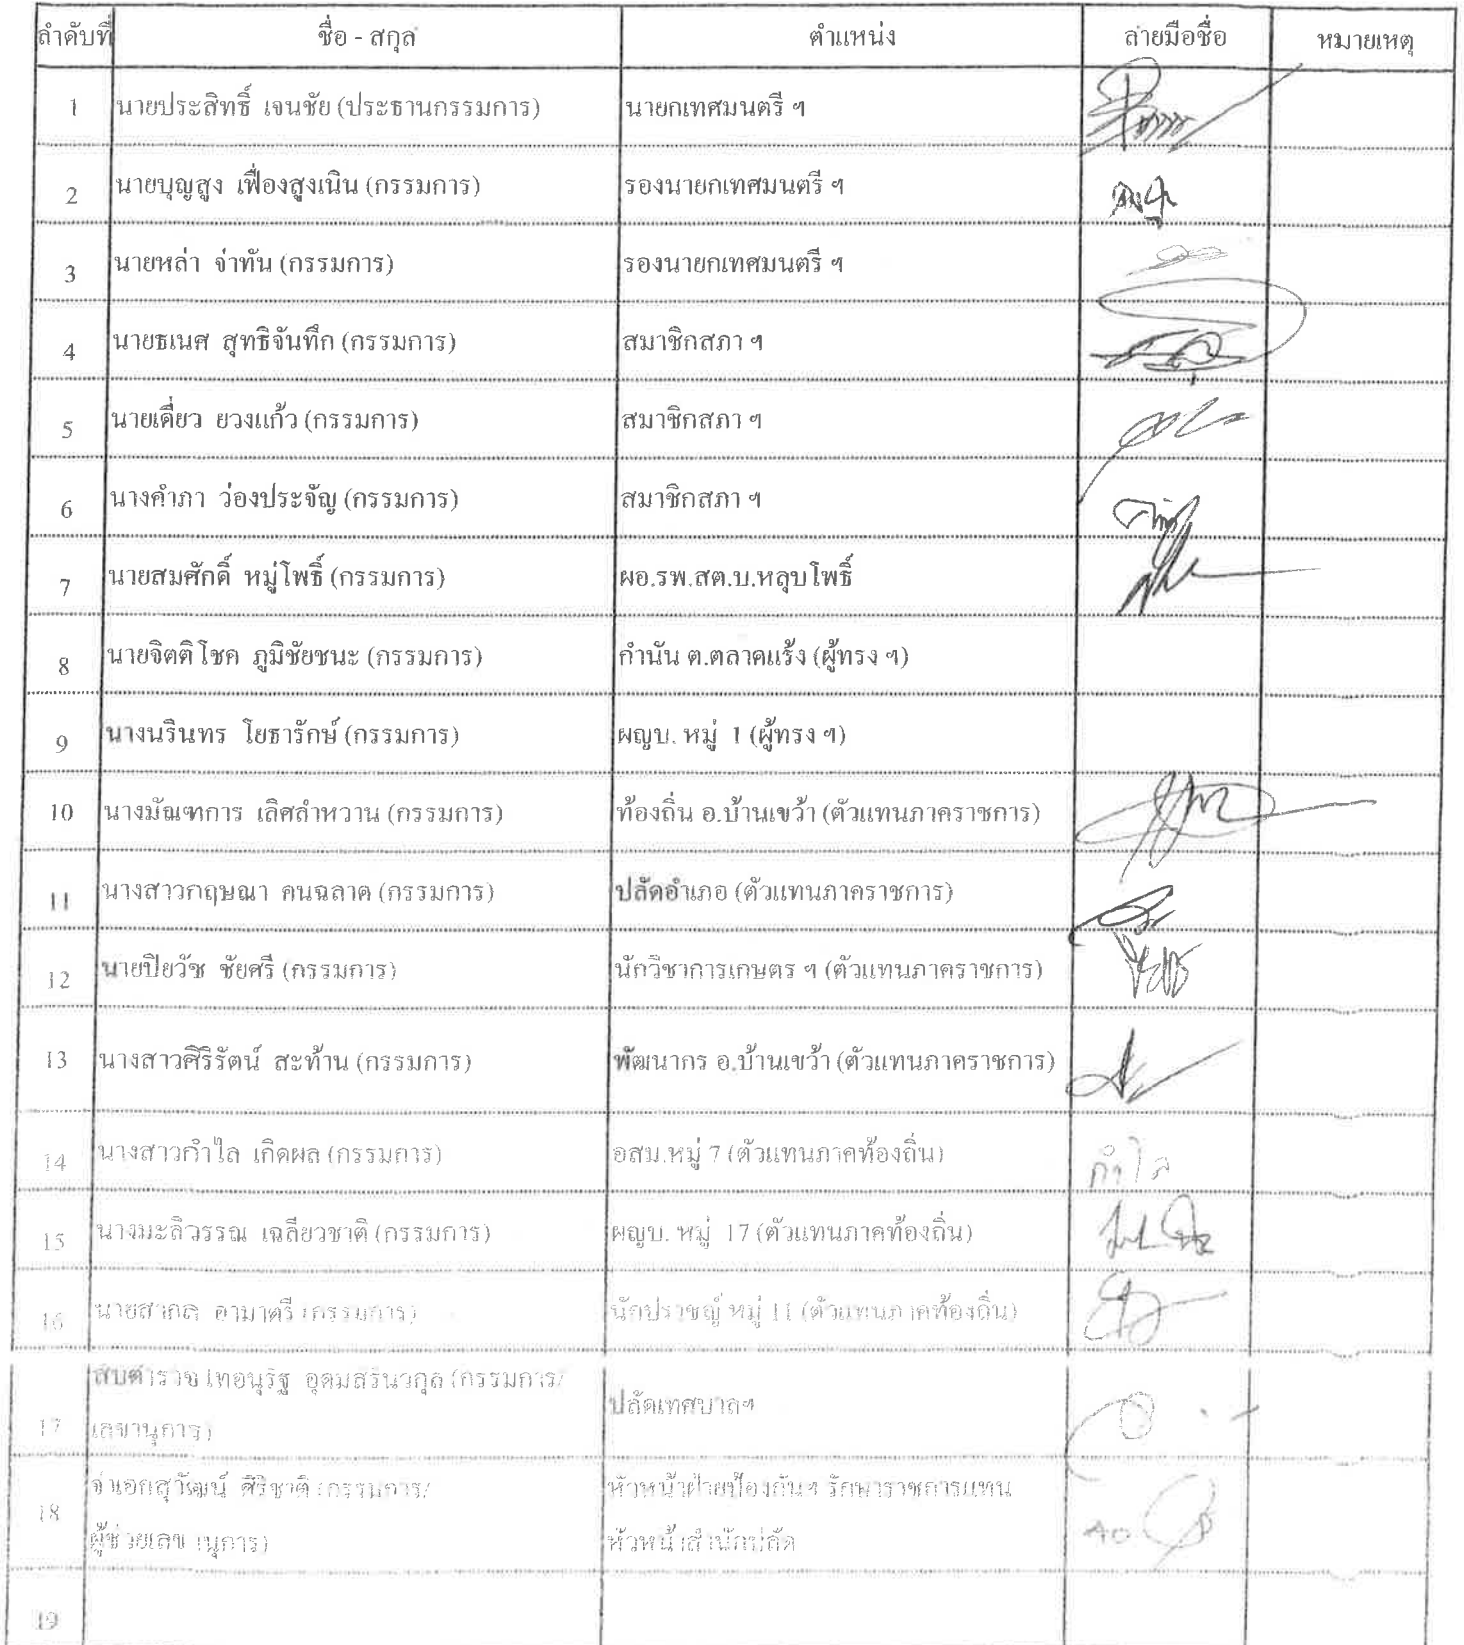 ลำดับที่ ชื่อ - สกุล ตำแหน่ง ลายมือชื่อ หมายเหตุ
1 นายประสิทธิ์ เจนชัย (ประธานกรรมการ) นายกเทศมนตรี ฯ
2 นายบุญสูง เฟื่องสูงเนิน (กรรมการ) รองนายกเทศมนตรี ฯ
3 นายหล่า จ่าทัน (กรรมการ) รองนายกเทศมนตรี ฯ
4 นายธเนศ สุทธิจันทึก (กรรมการ) สมาชิกสภา ฯ
5 นายเคี่ยว ยวงแก้ว (กรรมการ) สมาชิกสภา ฯ
6 นางคำภา ว่องประจัญ (กรรมการ) สมาชิกสภา ฯ
7 นายสมศักดิ์ หมู่โพธิ์ (กรรมการ) ผอ.รพ.สต.บ.หลุบโพธิ์
8 นายจิตติโชค ภูมิชัยชนะ (กรรมการ) กำนัน ต.ตลาดแร้ง (ผู้ทรง ฯ)
9 นางนรินทร โยธารักษ์ (กรรมการ) ผญบ. หมู่ 1 (ผู้ทรง ฯ)
10 นางมัณฑการ เลิศลำหวาน (กรรมการ) ท้องถิ่น อ.บ้านเขว้า (ตัวแทนภาคราชการ)
11 นางสาวกฤษณา คนฉลาด (กรรมการ) ปลัดอำเภอ (ตัวแทนภาคราชการ)
12 นายปิยวัช ชัยศรี (กรรมการ) นักวิชาการเกษตร ฯ (ตัวแทนภาคราชการ)
13 นางสาวศิริรัตน์ สะท้าน (กรรมการ) พัฒนากร อ.บ้านเขว้า (ตัวแทนภาคราชการ)
14 นางสาวกำไล เกิดผล (กรรมการ) อสม.หมู่ 7 (ตัวแทนภาคท้องถิ่น) กำไล
15 นางมะลิวรรณ เฉลียวชาติ (กรรมการ) ผญบ. หมู่ 17 (ตัวแทนภาคท้องถิ่น)
16 นายสากล อามาตรี (กรรมการ) นักปราชญ์ หมู่ 11 (ตัวแทนภาคท้องถิ่น)
สิบตำรวจโทอนุรัฐ อุดมสรินวกุล (กรรมการ/
17 เลขานุการ) ปลัดเทศบาลฯ
จ่าเอกสุวัฒน์ ศิริชาติ (กรรมการ/ หัวหน้าฝ่ายป้องกันฯ รักษาราชการแทน
18 ผู้ช่วยเลขานุการ) หัวหน้าสำนักปลัด
19